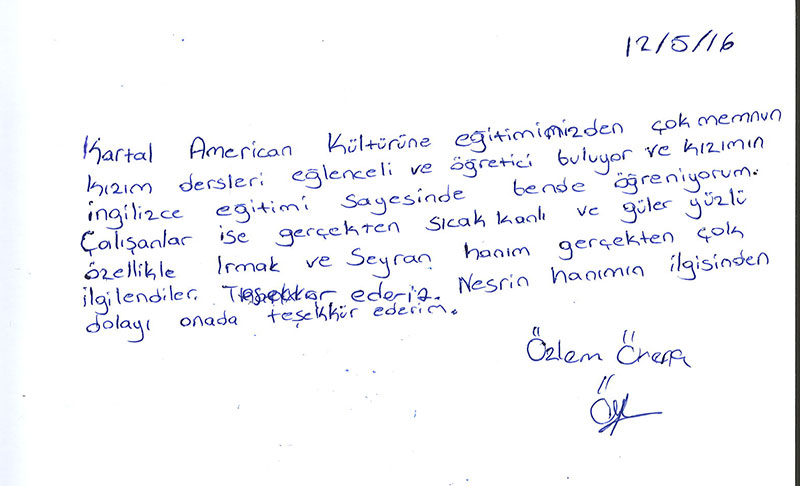 12/5/16
Kartal American Kültürüne eğitimimizden çok memnun
kızım dersleri eğlenceli ve öğretici buluyor ve kızımın
ingilizce eğitimi sayesinde bende öğreniyorum.
Çalışanlar ise gerçekten sıcak kanlı ve güler yüzlü
özellikle Irmak ve Seyran hanım gerçekten çok
ilgilendiler. Teşekkür ederiz. Nesrin hanımın ilgisinden
dolayı onada teşekkür ederim.
Özlem